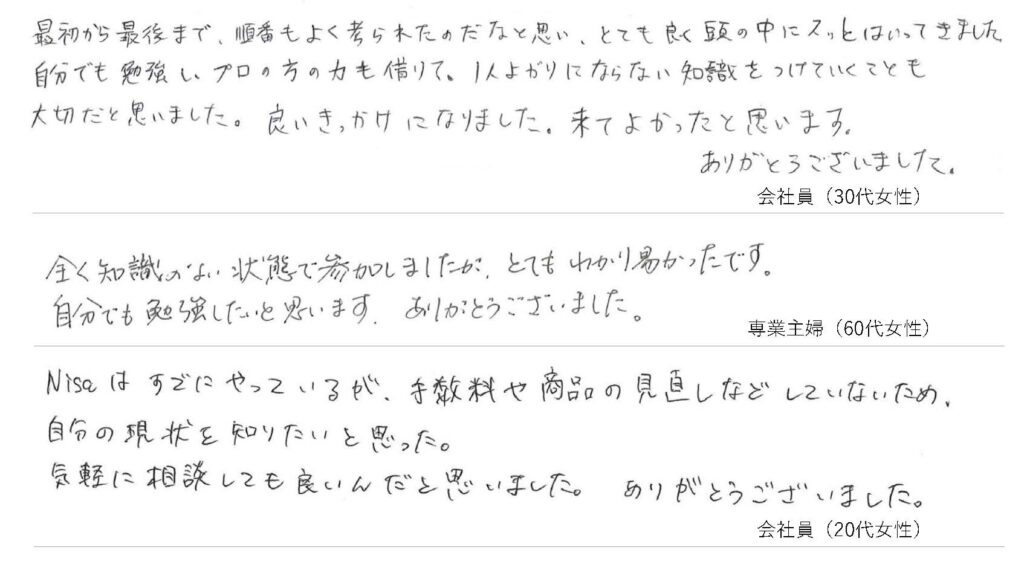 最初から最後まで、順番もよく考られたのだなと思い、とても良く頭の中にスッとはいってきました
自分でも勉強し、プロの方の力も借りて。1人よがりにならない知識をつけていくことも
大切だと思いました。良いきっかけになりました。来てよかったと思います。
ありがとうございました。
会社員（30代女性）
全く知識のない状態で参加しましたが、とてもわかり易かったです。
自分でも勉強したいと思います。ありがとうございました。
専業主婦（60代女性）
Nisaはすでにやっているが、手数料や商品の見直しなどしていないため、
自分の現状を知りたいと思った。
気軽に相談しても良いんだと思いました。ありがとうございました。
会社員（20代女性）